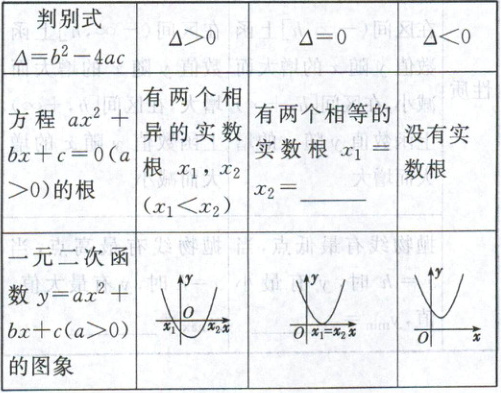 判别式
Δ=b²-4ac
Δ>0
Δ=0
Δ<0
方程 ax²+
bx+c=0(a
>0)的根
有两个相
异的实数
根 x₁，x₂
(x₁<x₂)
有两个相等的
实数根 x₁ =
x₂=______
没有实
数根
一元二次函
数 y=ax²+
bx+c(a>0)
的图象
y
O
x₁
x₂
x
y
O
x₁=x₂
x
y
O
x